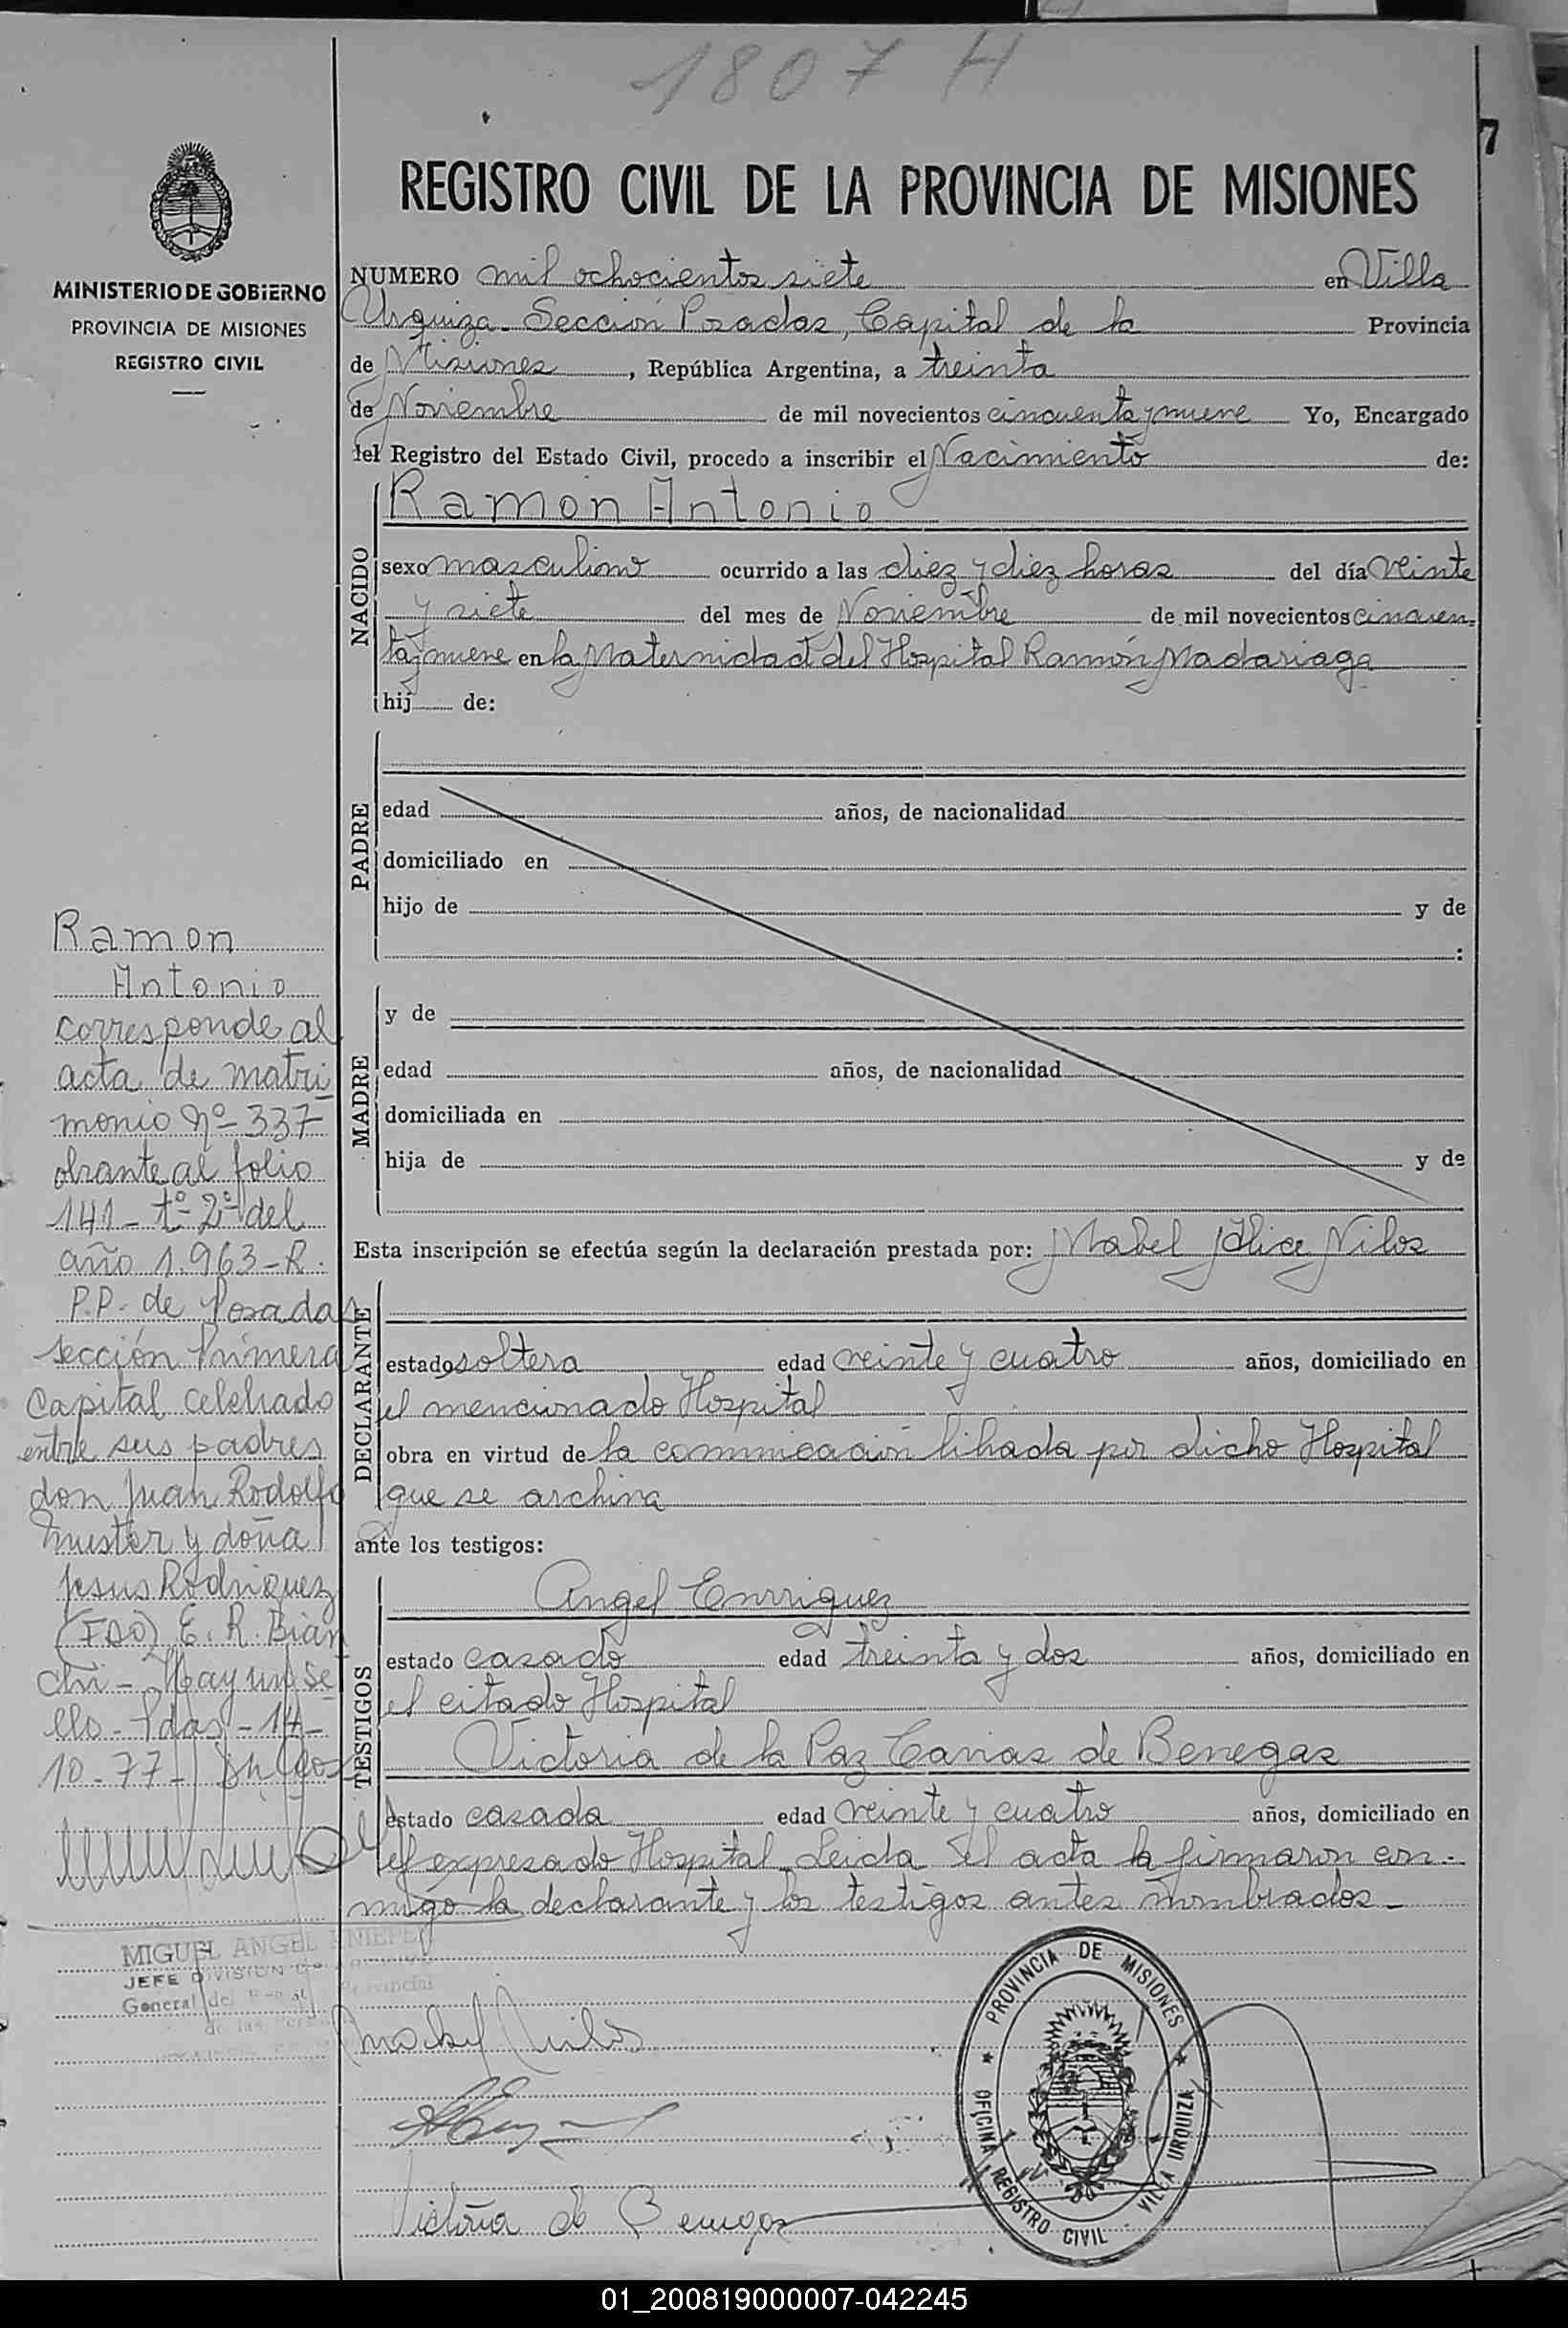 1807 H
7
REGISTRO CIVIL DE LA PROVINCIA DE MISIONES
MINISTERIO DE GOBIERNO
PROVINCIA DE MISIONES
REGISTRO CIVIL
NUMERO mil ochocientos siete en Villa
Urquiza - Sección Posadas, Capital de la Provincia
de Misiones, República Argentina, a treinta
de Noviembre de mil novecientos cincuenta y nueve Yo, Encargado
del Registro del Estado Civil, procedo a inscribir el Nacimiento de:
Ramon Antonio
NACIDO
sexo masculino ocurrido a las diez y diez horas del día veinte
y siete del mes de Noviembre de mil novecientos cincuen-
ta y nueve en la Maternidad del Hospital Ramón Madariaga
hij de:
PADRE
edad años, de nacionalidad
domiciliado en
hijo de y de
:
MADRE
y de
edad años, de nacionalidad
domiciliada en
hija de y de
Esta inscripción se efectúa según la declaración prestada por: Mabel Alice Nilos
DECLARANTE
estado soltera edad veinte y cuatro años, domiciliado en
el mencionado Hospital
obra en virtud de la comunicación librada por dicho Hospital
que se archiva
ante los testigos:
TESTIGOS
Angel Enrriquez
estado casado edad treinta y dos años, domiciliado en
el citado Hospital
Victoria de la Paz Canas de Benegas
estado casada edad veinte y cuatro años, domiciliado en
el expresado Hospital Leida el acta la firmaron con-
migo la declarante y los testigos antes nombrados -
Ramon
Antonio
corresponde al
acta de matri
monio Nº 337
obrante al folio
141 - tº 2º del
año 1.963 - R.
P.P. de Posadas
sección Primera
Capital celebrado
entre sus padres
don Juan Rodolfo
y doña
Jesus Rodriguez
(FDO) E. R. Bian
chi - Hay un se
llo - Pdas - 14 -
10 - 77 -
MIGUEL ANGEL
JEFE DIVISION
General del
de las
Mabel Nilos
Victoria de Benegas
PROVINCIA DE MISIONES
OFICINA REGISTRO CIVIL - VILLA URQUIZA
01_200819000007-042245